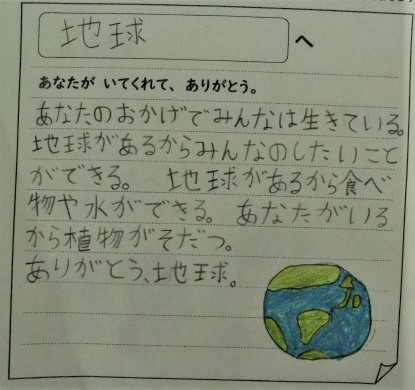 地球
へ
あなたが いてくれて、ありがとう。
あなたのおかげでみんなは生きている。
地球があるからみんなのしたいこと
ができる。 地球があるから食べ
物や水ができる。 あなたがいる
から植物がそだつ。
ありがとう、地球。